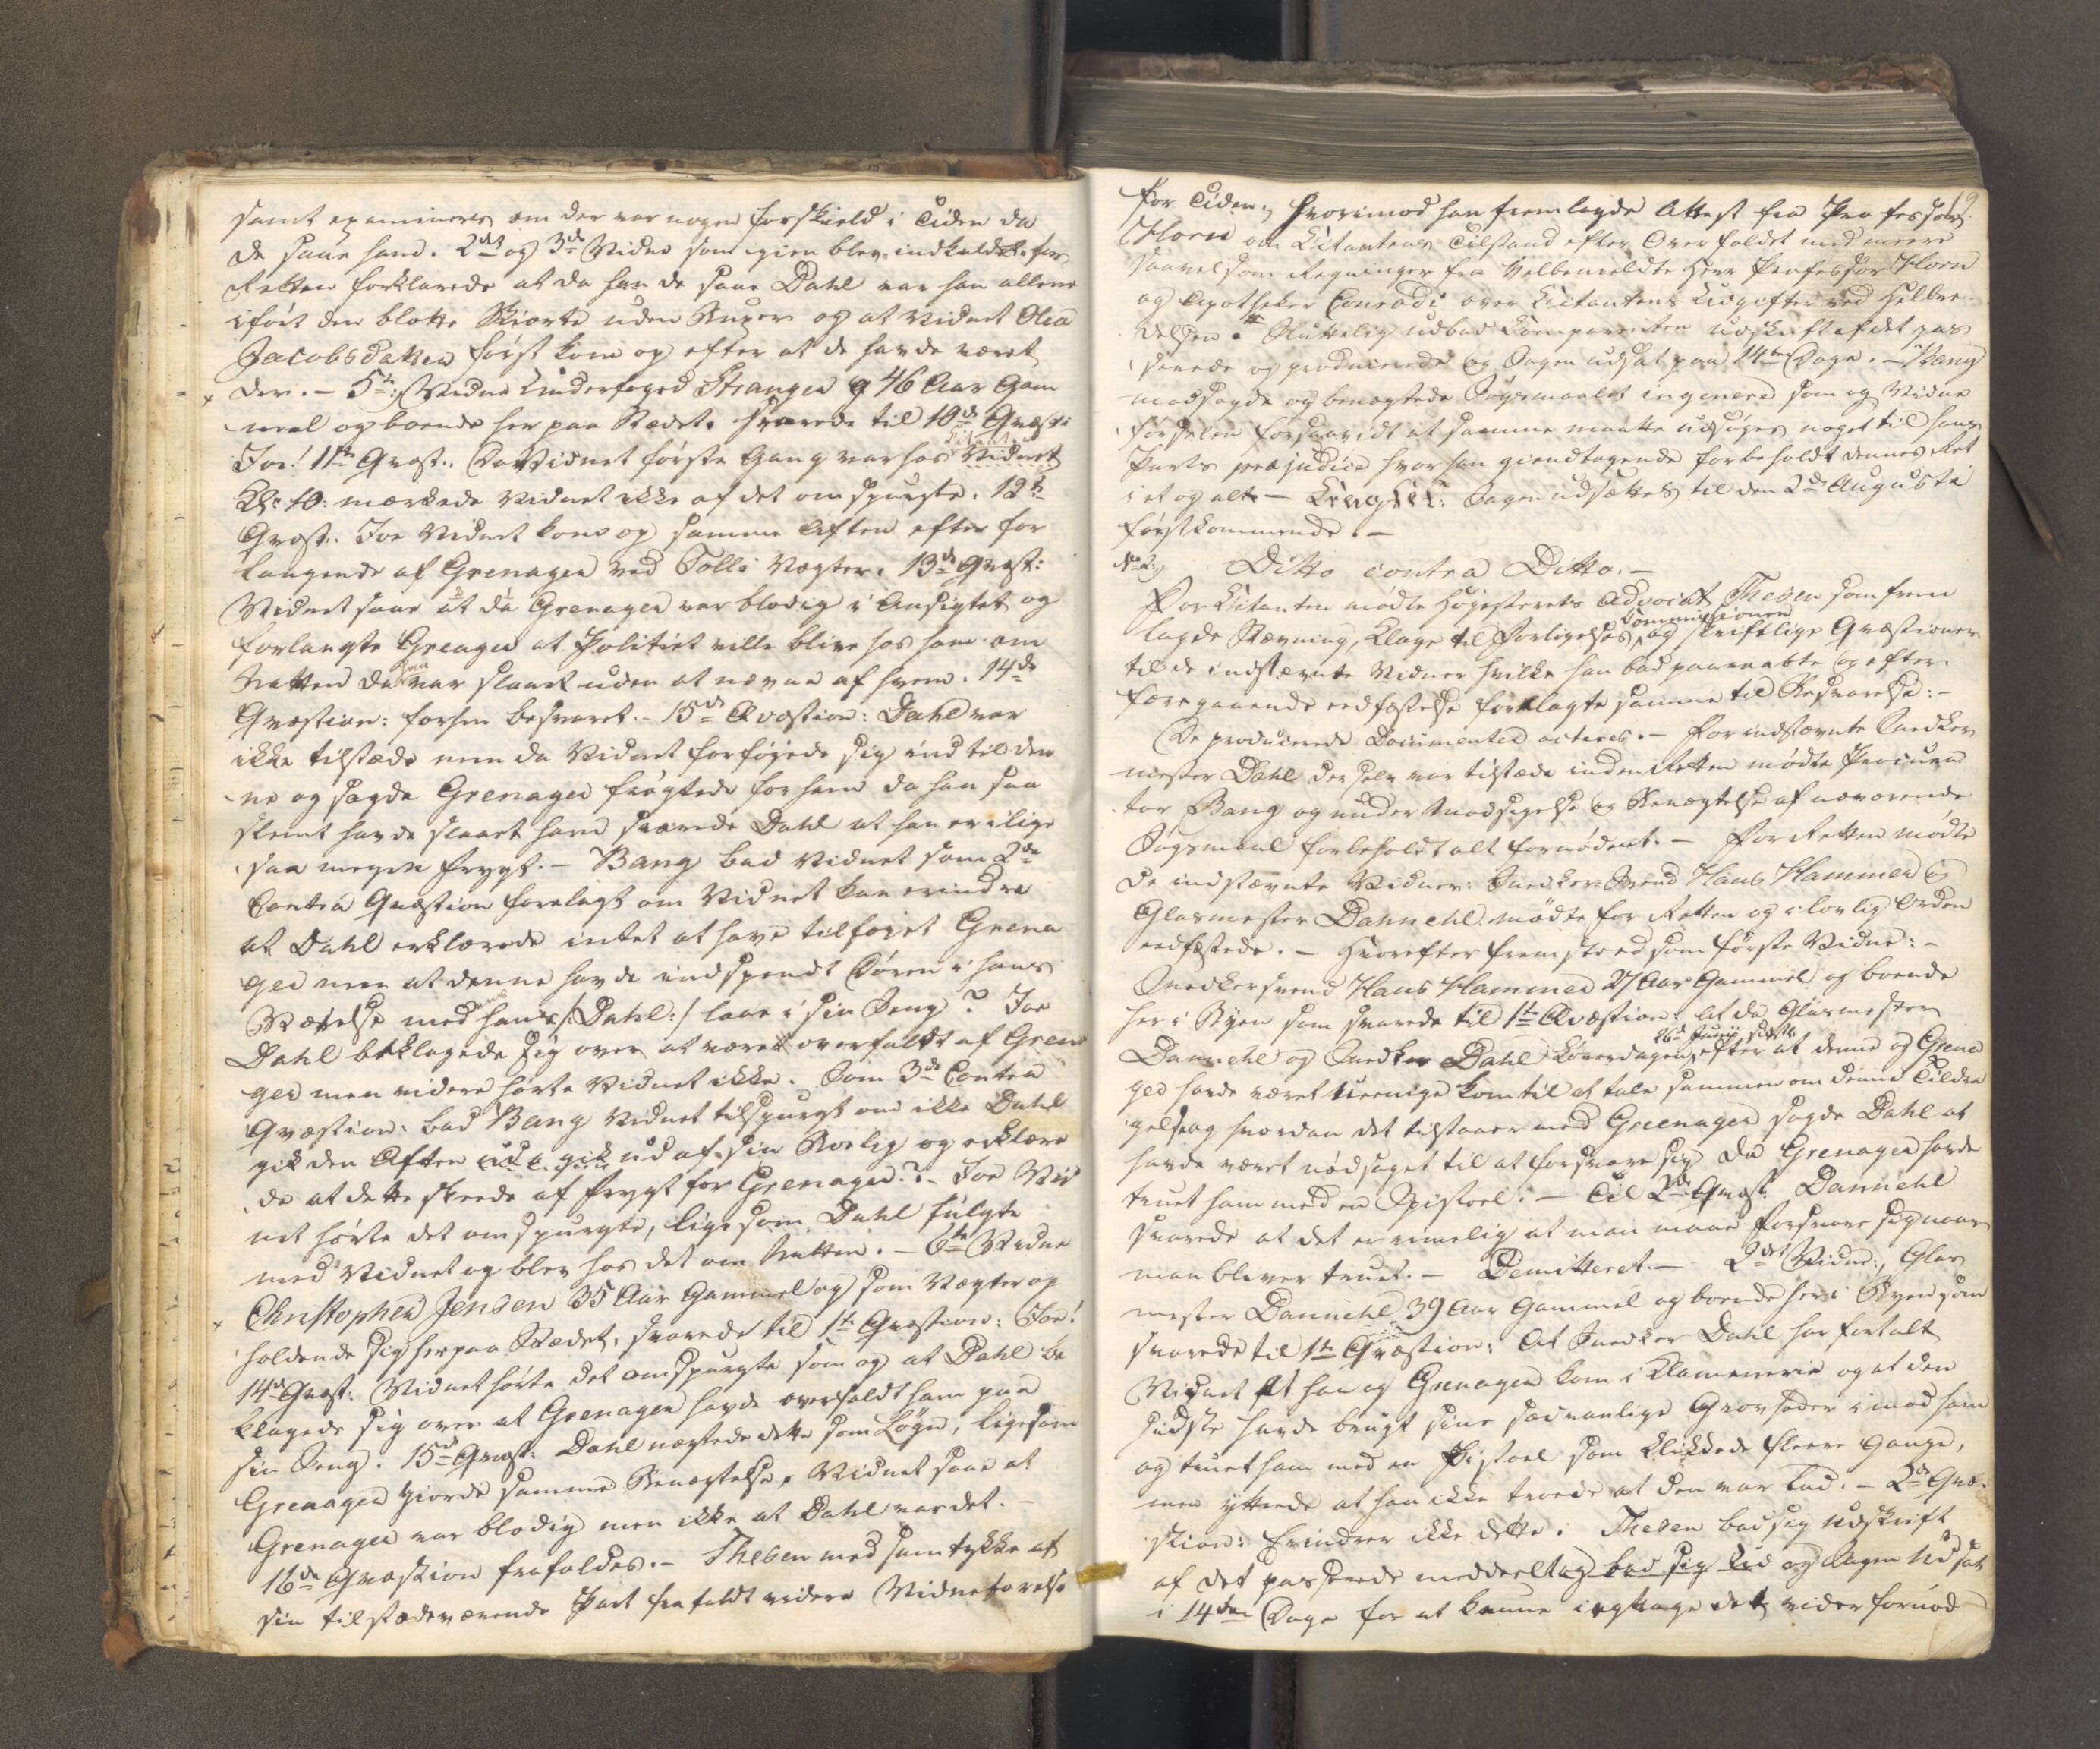 samt examineres om der var nogen forskield i Tiden da
de saae ham. 2det og 3de Vidne som igien blev indkaldt for
Retten forklarede at da han de saae Dahl var han allene
iført den blotte Skiorte uden Buxer og at Vidnet Olea
Jacobsdatter først kom op efter at de havde været
der. - 5te Vidne Underfoged Stranger 46 Aar Gam
mel og boende her paa Stædet. Svarede til 10de Qvæst:
Joe! 11te Qvæst.. Da Vidnet første Gang var hos Citanten Vidnet
mærkede Vidnet ikke af det omspurgte. 12te
Qvæst.. Joe Vidnet kom op samme Aften efter for
langende af Grenager ved Vægter. 13de Qvæst:
Vidnet saae at da Grenager var blodig i Ansigtet og
forlangte Grenager at Politiet ville blive hos ham om
Natten da han var slaaet uden at nævne af hvem. 14de
Qvæstion: forhen besvaret. - 15de Qvæstion: Dahl var
ikke tilstæde men da Vidnet forføjede sig ind til den
ne og sagde Grenager frøgtede for ham da han saa
slemt havde slaaet ham svarede Dahl at han er i lige
saa megen frygt. - Bang bad Vidnet som 2de
Contra Qvæstion forelagt om Vidnet kan erindre
at Dahl erklærede intet at have tilføiet Grena
ger men at denne havde indspendt Døren i hans
Værelse med hans /: Dahl :/ laae i sin Seng? Joe
Dahl beklagede sig over at være overfaldt af Grena
ger men videre hørte Vidnet ikke. Som 3de Contra
Qvæstion: bad Bang Vidnet tilspurgt om ikke Dahl
gik den Aften ud af sin Bolig og erklære
de at dette skeede af frygt for Grenager? - Joe Vid
net hørte det omspurgte, ligesom Dahl fulgte
med Vidnet og blev hos det om Natten. - 6te Vidne
Christopher Jensen 35 Aar Gammel og som Vægter op
holdende sig her paa Stædet, svarede til 1te Qvæstion: Joe!
14de Qvæst: Vidnet hørte det omspurgte som og at Dahl be
klagede sig over at Grenager havde overfaldt ham paa
sin Seng. 15de Qvæst: Dahl nægtede dette som Løgn, ligesom
Grenager giorde samme Benægtelse, Vidnet saae at
Grenager var blodig men ikke at Dahl var det. -
16de Qvæstion frafaldes. - Thesen med samtykke af
sin tilstædeværende Part frafaldt videre Vidneførelse
19
for Tiden; hvorimod han fremlagde Attest fra Professor
Horn om Citantens Tilstand efter Overfaldet med mere
saavelsom Regninger fra Velbemeldte Herr Professor Horn
og Apotheker Conradi over Citantens Udgifter ved Helbre
delsen. Sluttelig udbad Comparenten Udskrift af det pas
serede og producerede og Sagen udsat paa 14ten Dage. - Bang
modsagde og benægtede Søgsmaalet ingenere som og Vidne
førselen forsaavidt at samme maatte udsiges noget til hans
Parts præjudice hvor han giendtagende forbeholdt dennes Ret
i et og alt. - Eragtet: Sagen udsættes til den 2de Augusti
førstkommende. -
No 2. Ditto contra Ditto. -
For Citanten mødte Højesterets Advocat Thesen som frem
lagde Stævning, Klage til Forligelses Commissionen, og skriftlige Qvæstioner
til de indstævnte Vidner hvilke han bad paaraabte og efter
foregaaende eedfæstelse forelagte samme til Besvarelse: -
De producerede Documenter acteres. - For indstævnte Snedker
mester Dahl der selv var tilstæde inden Retten mødte Procura
tor Bang og under Modsigelse og Benægtelse af nærværende
Søgsmaal forbeholdt alt fornødent. - For Retten mødte
de indstævnte Vidner: Snedker-Svend Hans Hammer og
Glarmester Dannehl mødte for Retten og i lovlig Orden
eedfæstede. - Hvorefter fremstod som første Vidne: -
Snedkersvend Hans Hammer 27 Aar Gammel og boende
her i Byen som svarede til 1te Qvæstion: at da Glarmester
Dannehl og Snedker Dahl Løverdagen 26de Junij sidste efter at denne og Grena
ger havde været Ueenige kom til at tale sammen om denne Tildra
gelse og hvordan det tilstaaer med Greenager sagde Dahl at
havde været nødsaget til at forsvare sig da Grenager havde
truet ham med en Pistoel. - Til 2de Qvæst: Dannehl
svarede at det er rimelig at man maae forsvare sig naar
man bliver truet. - Demitteret. - 2det Vidne, Glar
mester Dannehl 39 Aar Gammel og boende her i Byen som
svarede til 1te Qvæstion: At Snedker Dahl har fortalt
Vidnet at han og Grenager kom i Klammerie og at den
sidste havde brugt sine sædvanlige Grovheder imod ham
og truet ham med en Pistoel som klikkede fleere Gange,
men yttrede at han ikke troede at den var lad. - 2de Qvæ
stion: Erindrer ikke dette. Thesen bad sig Udskrift
af det passerede meddeelt og bad sig Tid og Sagen Udsat
i 14ten Dage for at kunne iagttage det videre fornød